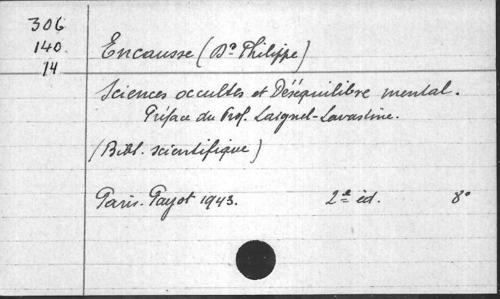 306
140
14
Encausse (Dr Philippe)
Sciences occultes et Déséquilibre mental.
Préface du Prof. Laignel-Lavastine.
(Bibl. scientifique)
Paris. Payot 1943. 2e éd. 8°